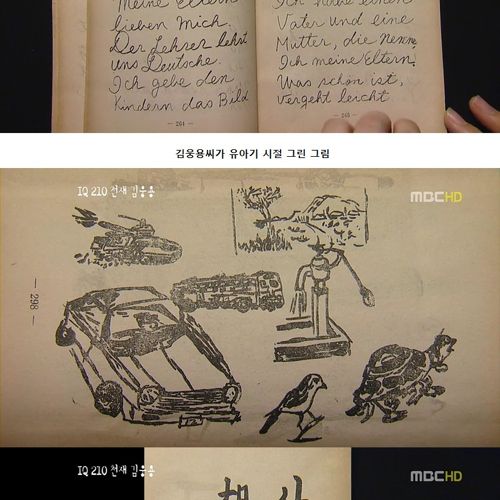 Meine Eltern
lieben mich.
Der Lehrer lehrt
uns Deutsche.
Ich gebe den
Kindern das Bild
— 264 —
Ich habe einen
Vater und eine
Mutter, die
Ich meine Eltern.
Was schön ist,
vergeht leicht.
— 265 —
김웅용씨가 유아기 시절 그린 그림
IQ 210 천재 김웅용
MBC HD
— 298 —
IQ 210 천재 김웅용
MBC HD